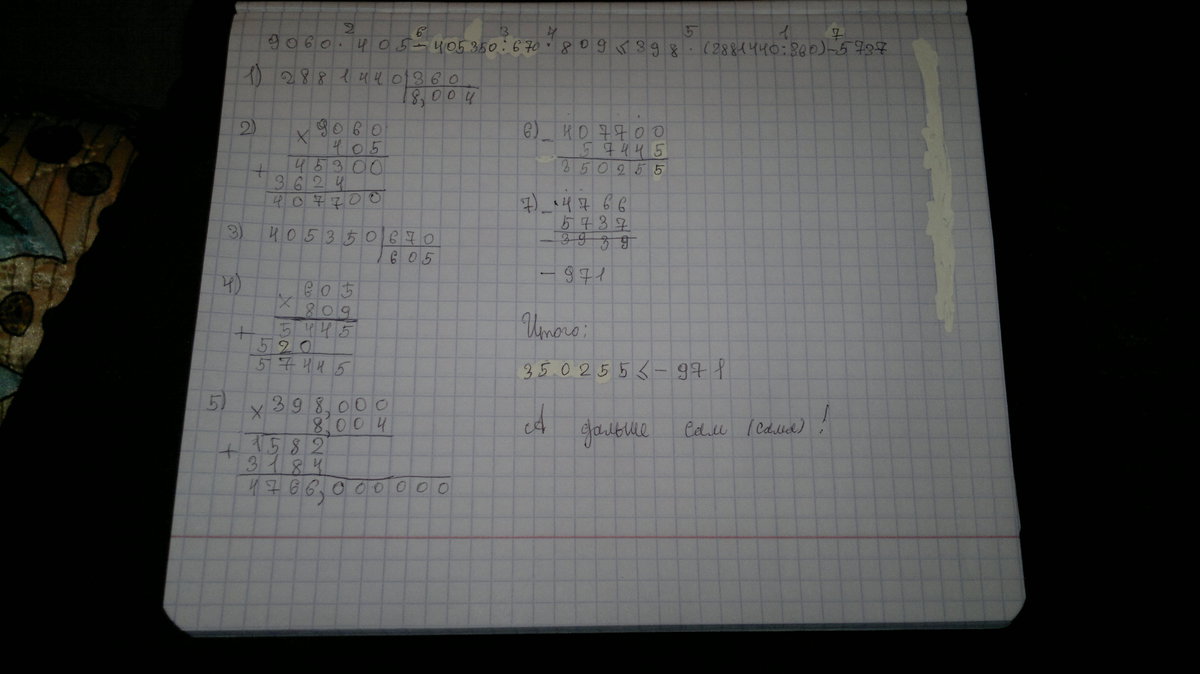 2 6 3 4 5 1 7
9060 · 405 - 405350 : 670 · 809 < 398 · (2881440:360) - 5737
1) 2881440 360
8,004
2) × 9060
405
+ 45300
3624
407700
3) 405350 670
605
4) × 605
809
+ 5445
520
57445
5) × 398,000
8,004
+ 1582
3184
4766,000000
6) - 407700
57445
350255
7) - 4766
5737
- 3939
- 971
Итого:
350255 < - 971
А дальше сам (сама)!